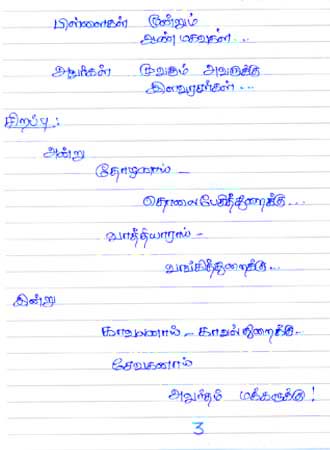 பிள்ளைகள் மூன்றும்
ஆண் மகவுகள்...
அவர்கள் மூவரும் அவருக்கு
இளவரசர்கள்...
சிறப்பு:
அன்று
தோழனாய் -
தொலைபேசித்துறைக்கு...
வாத்தியாராய் -
வங்கித்துறைக்கு...
இன்று
காவலனாய் - காவல் துறைக்கு..
சேவகனாய்
அவர்தம் மக்களுக்கு!
3